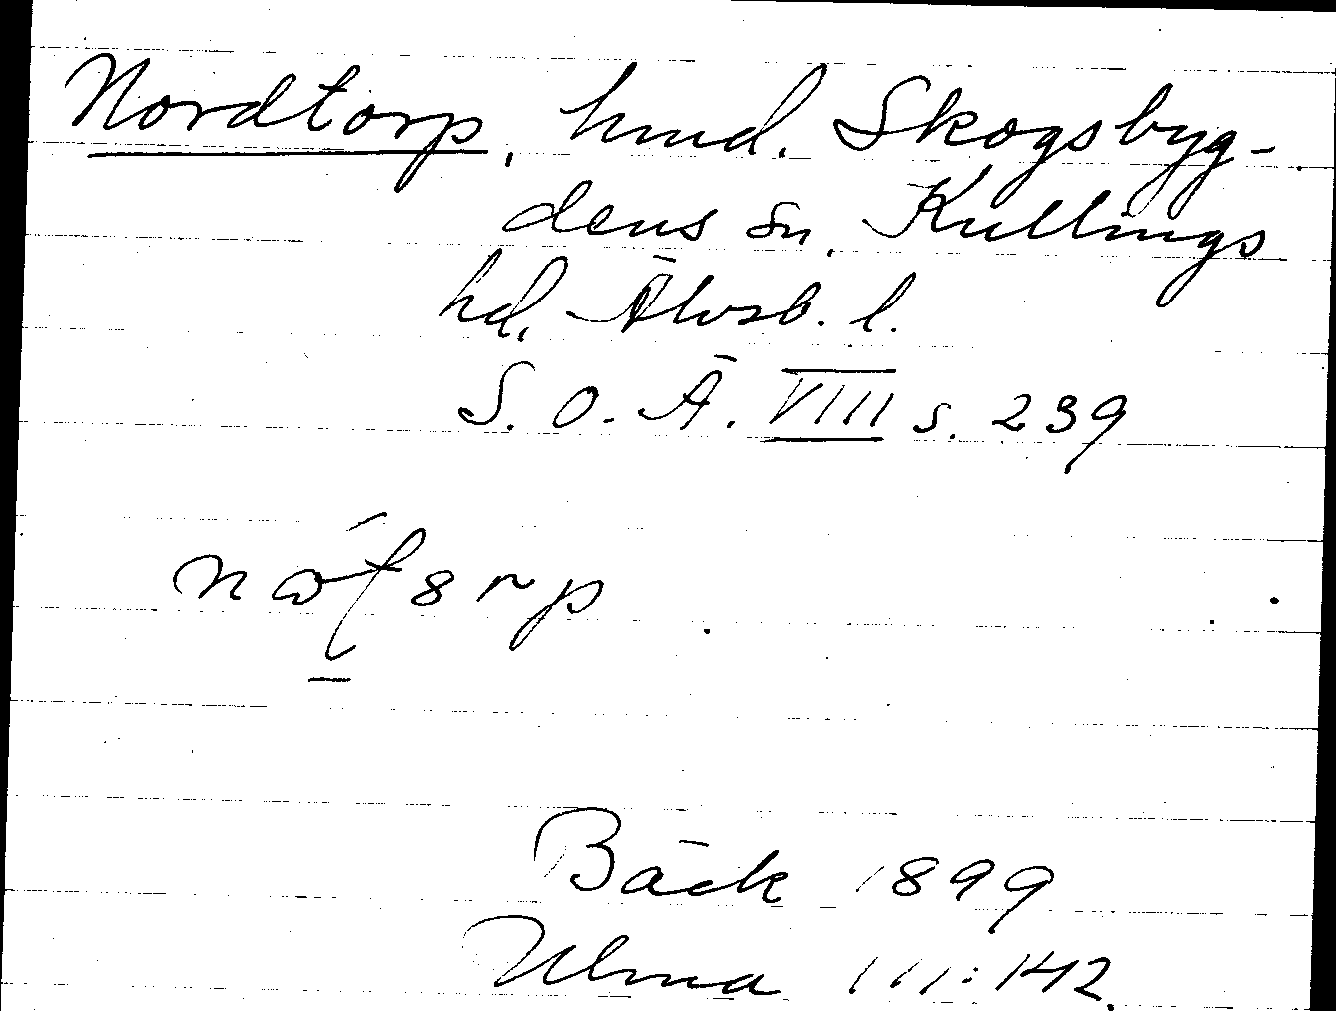 Nordtorp, hmd. Skogsbyg-
dens sn, Kullings
hd, Älvsb. l.
S. O. Ä. VIII s. 239
Bäck 1899
Ulma 111:142.